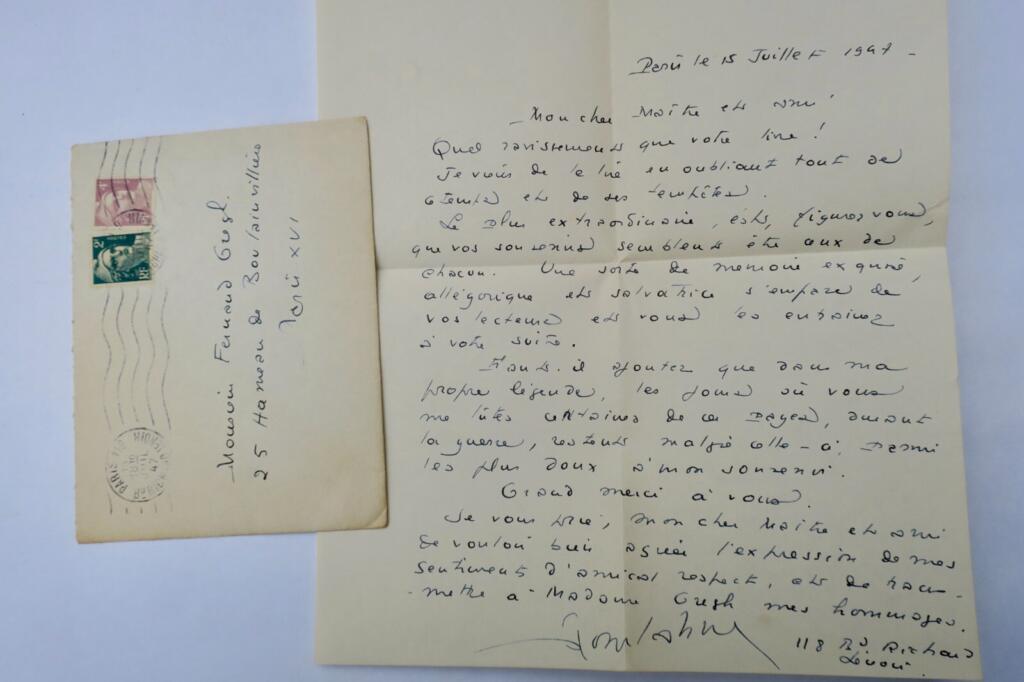 Monsieur Fernand Gregh.
25 Hameau de Boulainvilliers
Paris XVI
Paris le 15 Juillet 1947 -
- Mon cher Maître et ami
Quel ravissement que votre livre !
Je viens de le lire en oubliant tout de
ce temps et de ses tempêtes.
Le plus extraordinaire, est, figurez vous,
que vos souvenirs semblent être ceux de
chacun. Une sorte de memoire exquise,
allégorique et salvatrice s'empare de
vos lecteurs et vous les entrainez
à votre suite.
Faut-il ajouter que dans ma
propre légende, les jours où vous
me lûtes certaines de ces pages, avant
la guerre, restent malgré celle-ci, parmi
les plus doux à mon souvenir.
Grand merci à vous.
Je vous prie, mon cher Maître et ami
de vouloir bien agréer l'expression de mes
sentiments d'amical respect, et de trans-
-mettre à Madame Gregh mes hommages.
118 Bd Richard
Lenoir.
PARIS
47
RF